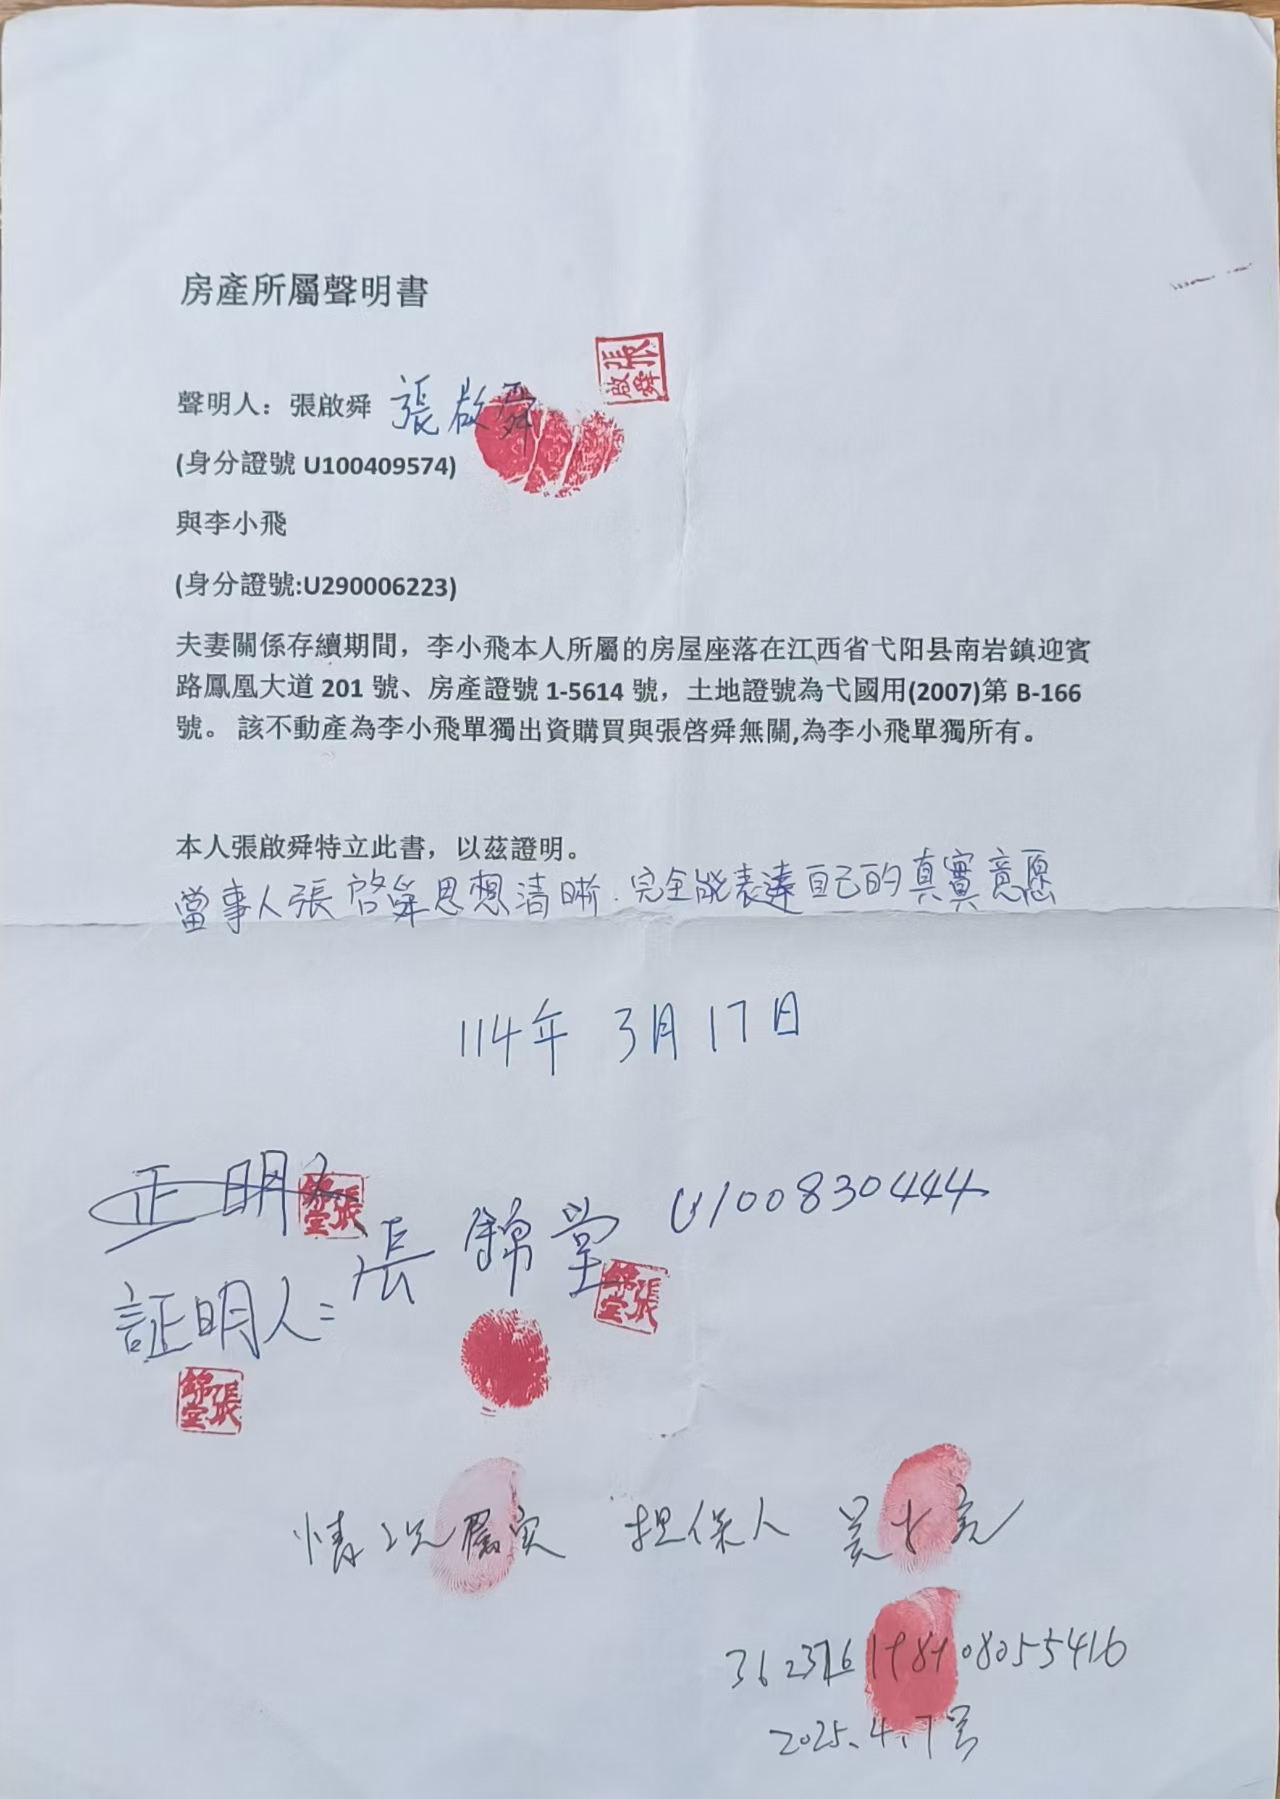 房產所屬聲明書
張啟舜
聲明人：張啟舜 張啟舜
(身分證號 U100409574)
與李小飛
(身分證號:U290006223)
夫妻關係存續期間，李小飛本人所屬的房屋座落在江西省弋阳县南岩鎮迎賓
路鳳凰大道 201 號、房產證號 1-5614 號，土地證號為弋國用(2007)第 B-166
號。 該不動產為李小飛單獨出資購買與張啓舜無關,為李小飛單獨所有。
本人張啟舜特立此書，以茲證明。
當事人張啓舜思想清晰.完全能表達自己的真實意愿
114年 3月17日
正明人
張錦堂
張錦堂 U100830444
証明人:
張錦堂
張錦堂
情况屬实 担保人
2025.4.7号